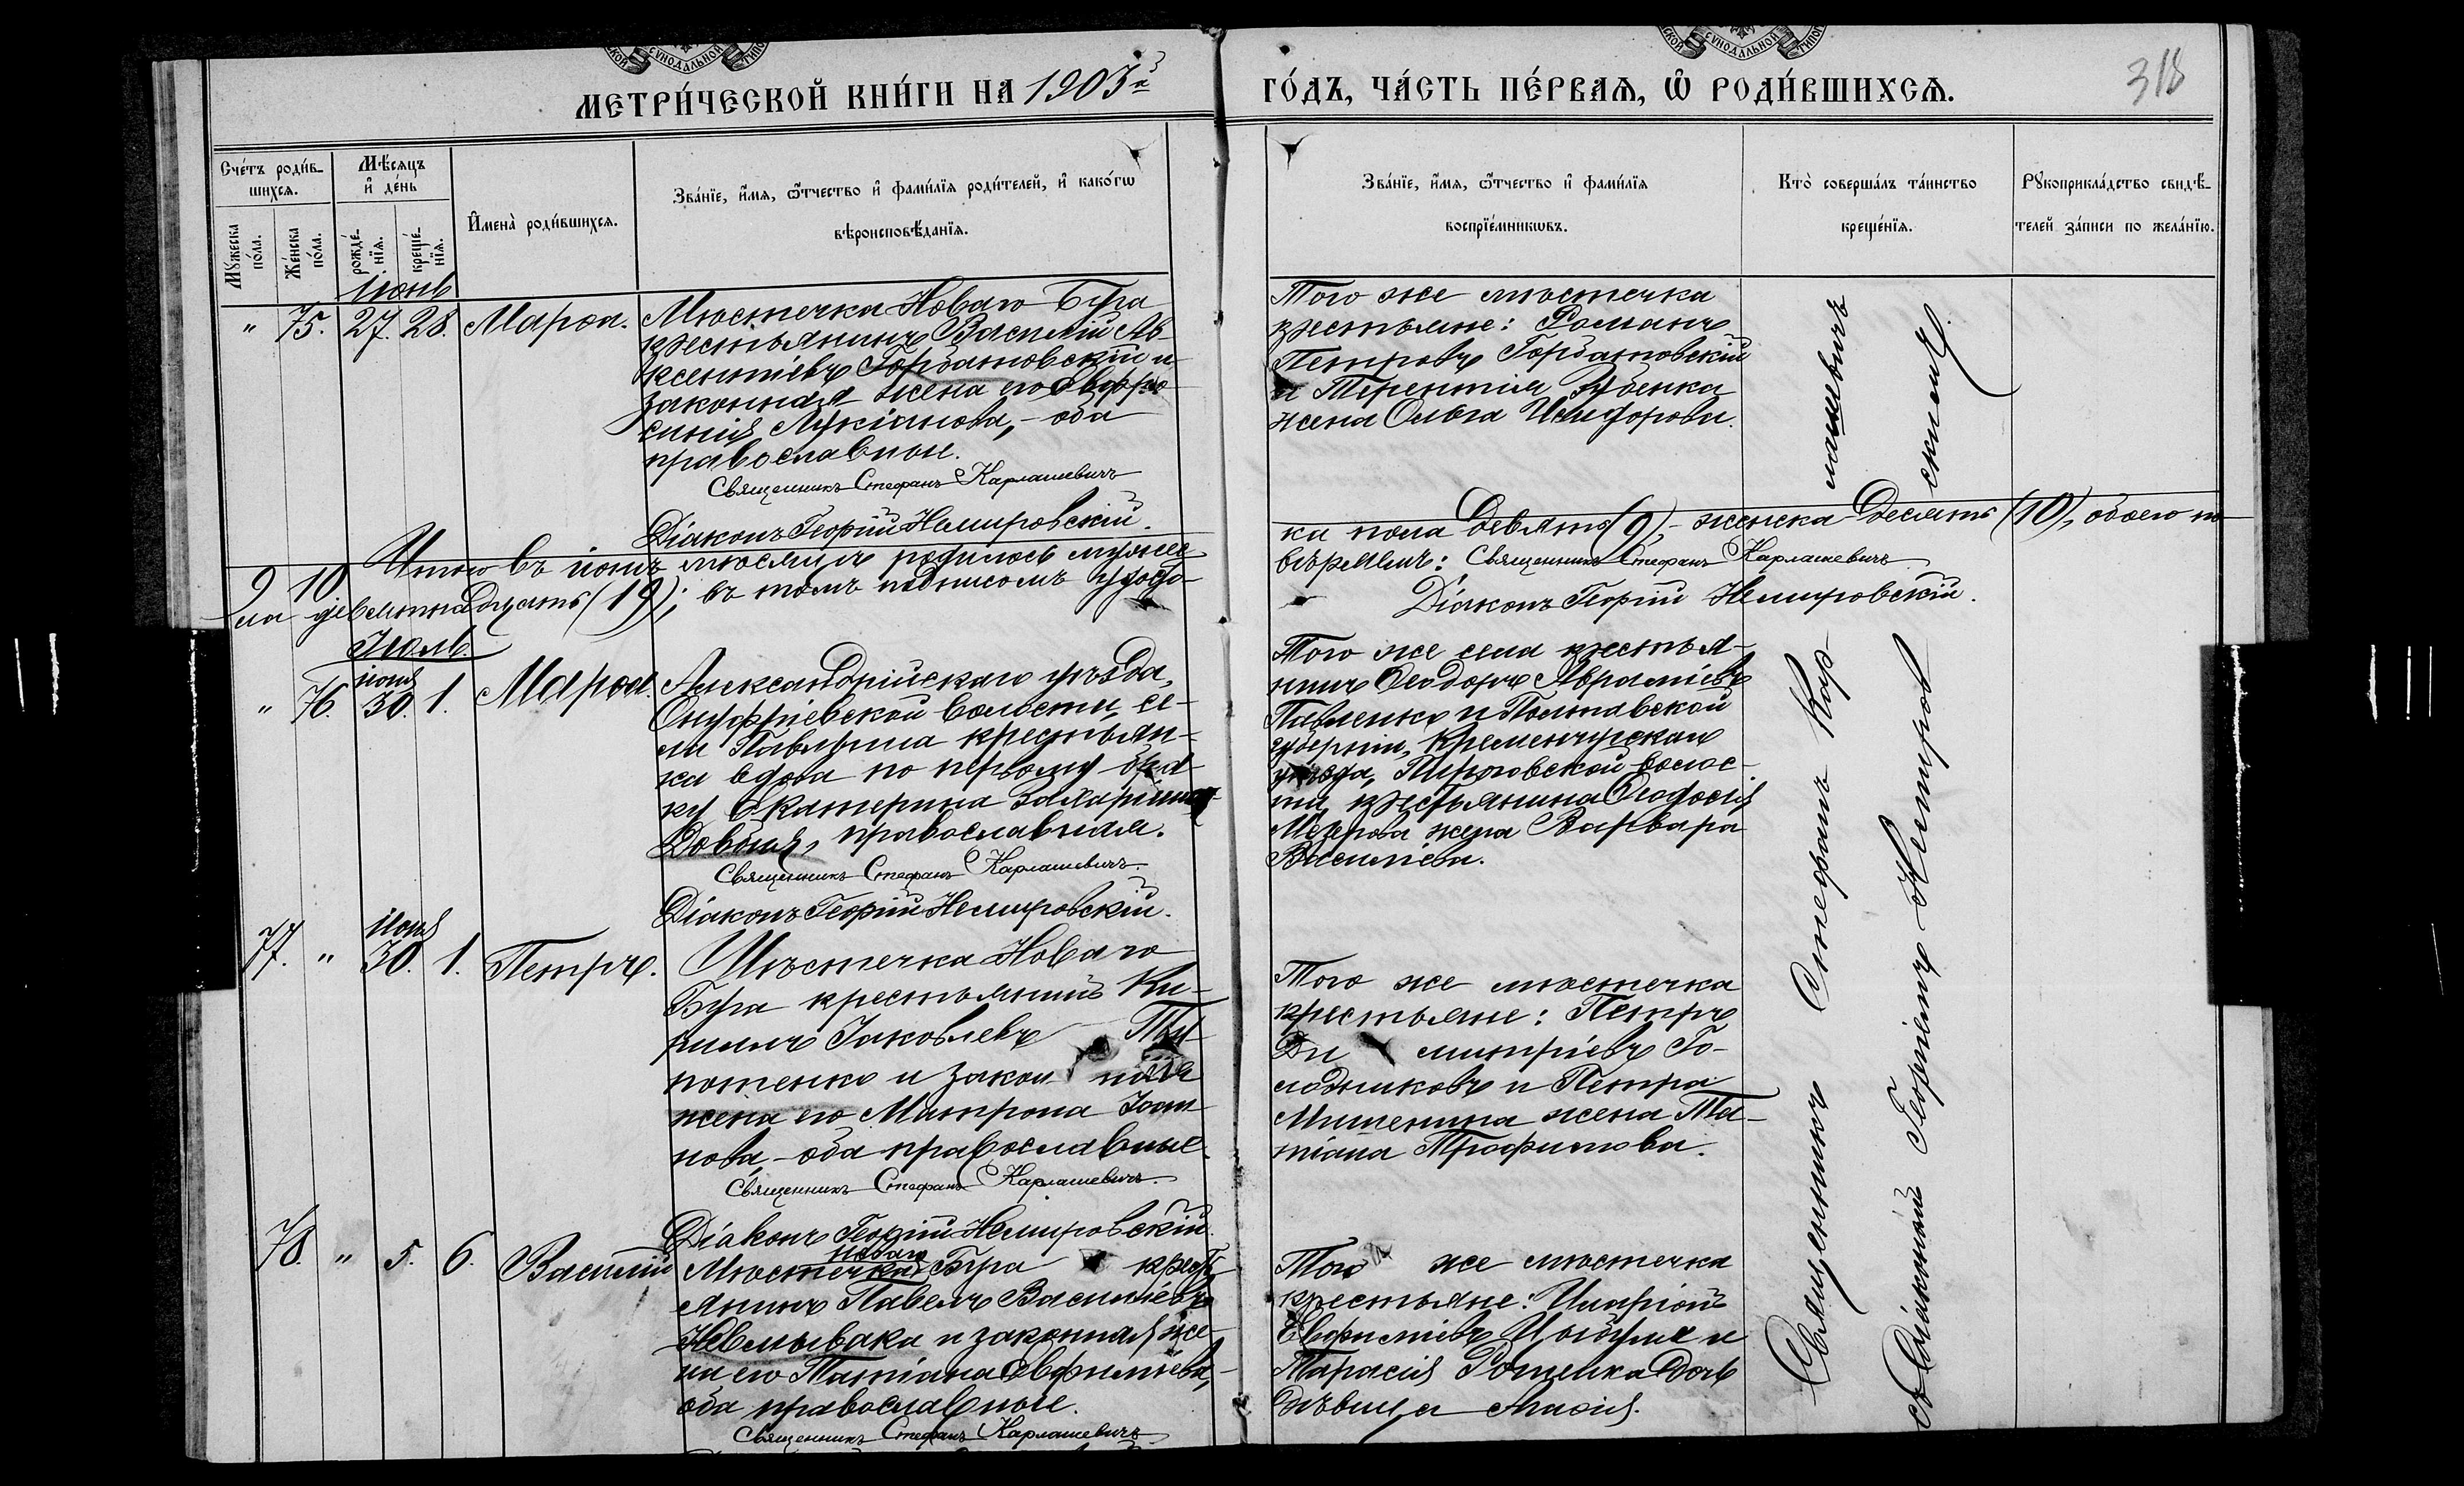 МЕТРИ́ЧЕСКОЙ КНИ́ГИ НА 1903й
ГО́ДЪ, ЧА́СТЬ ПЕ́РВАѦ, Ѡ҆ РОДИ́ВШИХСѦ.
318
Сче́тъ роди́в-
шихсѧ.
Мꙋ́жеска
по́ла.
Же́нска
по́ла.
Мѣ́сѧцъ
и҆ де́нь
рожде́-
нїѧ.
креще́-
нїѧ.
И҆мена̀ роди́вшихсѧ.
Зва́нїе, и҆́мѧ, ѻ҆́тчество и҆ фами́лїѧ роди́телей, и҆ како́гѡ
вѣроисповѣ́данїѧ.
Зва́нїе, и҆́мѧ, ѻ҆́тчество и҆ фами́лїѧ
воспрїе́мникѡвъ.
Кто̀ соверша́лъ та́инство
креще́нїѧ.
Рꙋкоприкла́дство свидѣ́-
телей за́писи по жела́нїю.
Іюнь
" 75. 27. 28. Марѳа.
Мѣстечка Новаго Буга
крестьянинъ Василій Ав-
ксентіевъ Горбатовскій и
законная жена его Евфро-
синія Лукіанова, - оба
православные.
Священникъ Стефанъ Карлашевичъ
Діаконъ Георгій Немировскій.
Того же мѣстечка
крестьяне: Романъ
Петровъ Горбатовскій
и Терентія Зубенка
жена Ольга Никифорова.
9 10 Итого въ іюнѣ мѣсяцѣ родилось мужес-
ка пола девять (9), - женска десять (10), обоего по-
ла девятнадцать (19); въ томъ подписомъ удосто-
вѣряемъ: Священникъ Стефанъ Карлашевичъ
Діаконъ Георгій Немировскій.
Іюль.
іюня
" 76. 30. 1. Марѳа.
Александрійскаго уѣзда,
Онуфріевской волости, се-
ла Павлыша крестьян-
ка вдова по первому бра-
ку Екатерина Захаріина
Довбня, православная.
Священникъ Стефанъ Карлашевичъ.
Діаконъ Георгій Немировскій.
Того же села крестья-
нинъ Ѳеодоръ Авраміевъ
Павленко и Полтавской
губерніи, Кременчугскаго
уѣзда, волос-
ти, крестьянина Ѳеодосія
жена Варвара
Василіева.
іюня
77. " 30. 1. Петръ.
Мѣстечка Новаго
Буга крестьянинъ Ки-
риллъ Іаковлевъ
и закон ная
жена его Матрона Іоан-
нова, - оба православные.
Священникъ Стефанъ Карлашевичъ.
Діаконъ Георгій Немировскій.
Того же мѣстечка
крестьяне: Петръ
Ди митріевъ Го-
лодниковъ и Петра
Мишенина жена Та-
тіана Трофимова.
78. " 5. 6. Василій
Новаго
Мѣстечка Буга кресть-
янинъ Павелъ Василіевъ
Невмывака и законная же-
на его Татіана Евфиміева,-
оба православные.
Священникъ Стефанъ Карлашевичъ
Того же мѣстечка
крестьяне: Иларіонъ
Евфиміевъ Цыбуля и
Тарасія Рощенка дочь
дѣвица
Священникъ Стефанъ Кар-
лашевичъ
съ Діакономъ Георгіемъ Немиров-
скимъ.